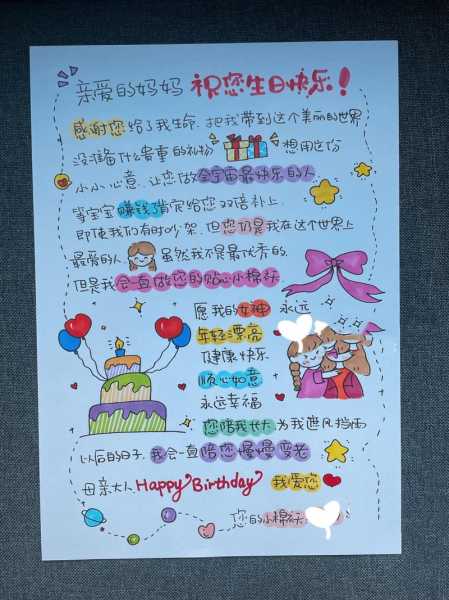 亲爱的妈妈 祝您生日快乐！
感谢您给了我生命，把我带到这个美丽的世界
没准备什么贵重的礼物 想用这份
小小心意，让您做全宇宙最快乐的人
等宝宝赚钱了肯定给您双倍补上，
即使我们有时吵架，但您仍是我在这个世界上
最爱的人， 虽然我不是最优秀的，
但是我会一直做您的贴心小棉袄
愿我的女神 永远
年轻漂亮
健康快乐
顺心如意
永远幸福
您陪我长大 为我遮风挡雨
以后的日子，我会一直陪您慢慢变老
母亲大人，Happy Birthday 我爱您
您的小棉袄